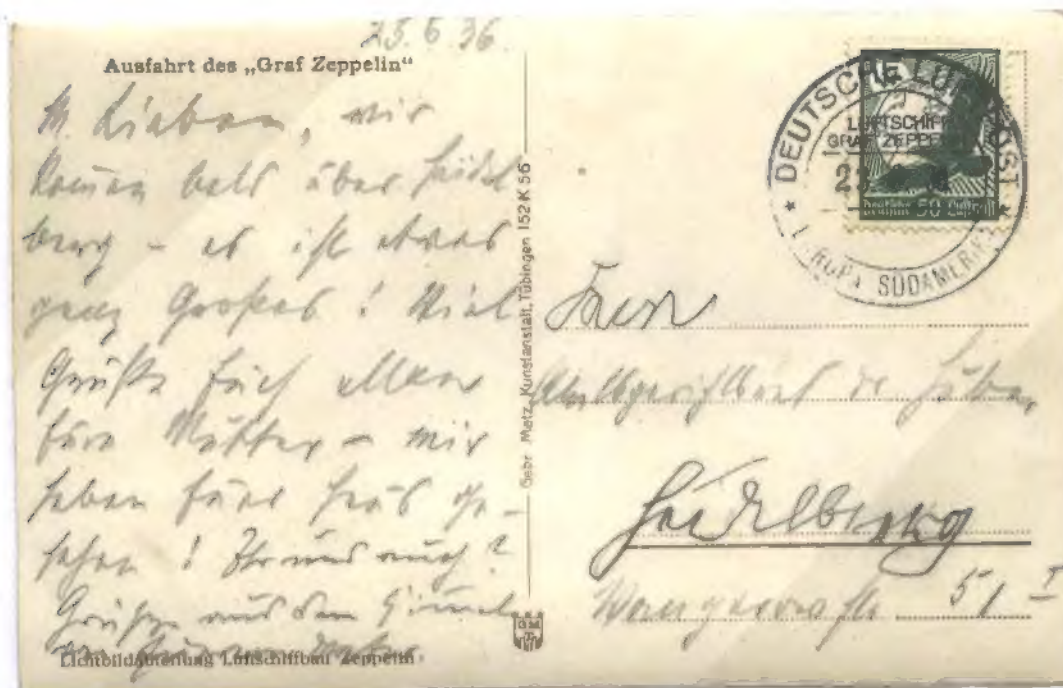 23.6.36.
Ausfahrt des „Graf Zeppelin“
M. Lieben, wir
kommen bald über Heidel
berg – es ist etwas
ganz Großes! Viel
Grüße Euch allen
Eure Mutter – wir
haben Euer Haus ge-
sehen! Ihr uns auch?
Grüße aus dem Himmel
Lichtbildabteilung Luftschiffbau Zeppelin
Gebr Metz, Kunstanstalt, Tübingen 152 K 56
DEUTSCHE LUFTPOST
LUFTSCHIFF
GRAF ZEPPELIN
EUROPA SÜDAMERIKA
Deutsche 50 Luftpost
Amtsgerichtsrat Dr
Heidelberg
51 I